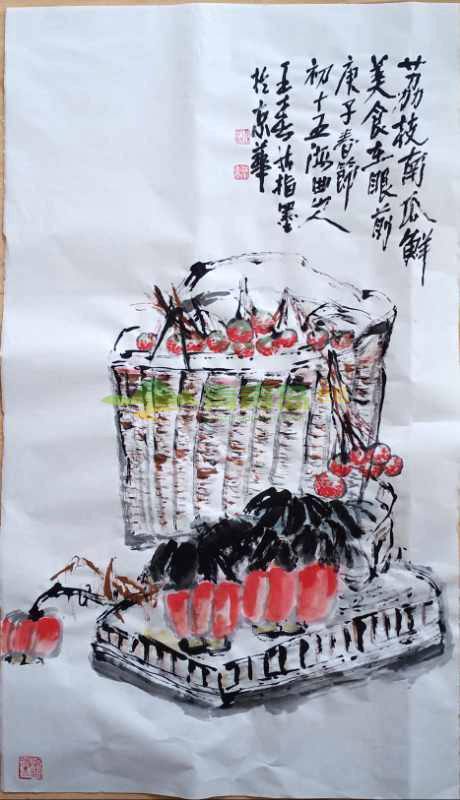 荔枝南瓜鮮
美食在眼前
庚子春節
初十五海曲山人
王春指墨
於京華